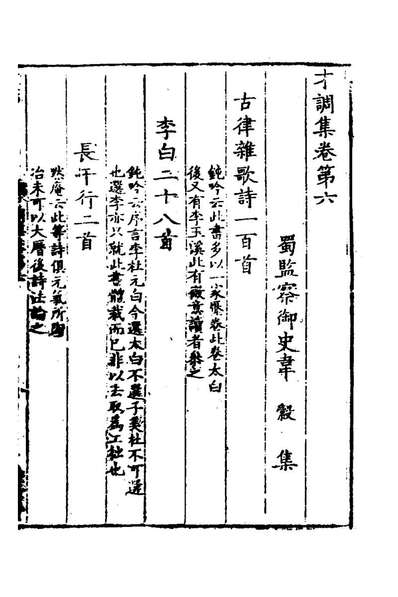 才調集卷第六
蜀監察御史韋縠集
古律雜歌詩一百首
鈍吟云此書多以一家壓卷此卷太白
後又有李玉溪此有微意讀者參之
李白二十八首
鈍吟云序言李杜元白今選太白不選子美杜不可選
也選李亦只就此書體裁而已非以去取爲工拙也
長干行二首
默庵云此等詩俱元氣所陶
冶未可以大曆後詩法論之